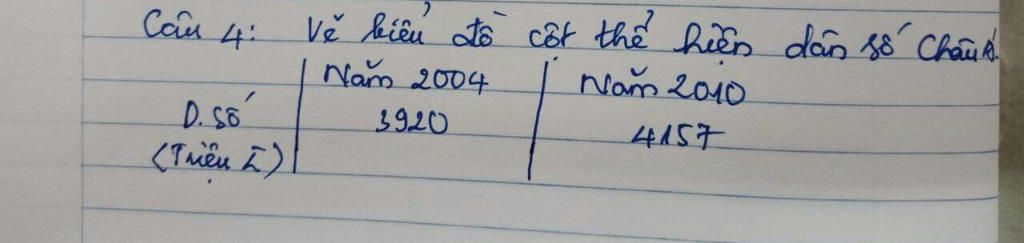 Câu 4: Vẽ biểu đồ cột thể hiện dân số Châu Á.
Năm 2004 Năm 2010
D. số 3920 4157
(Triệu